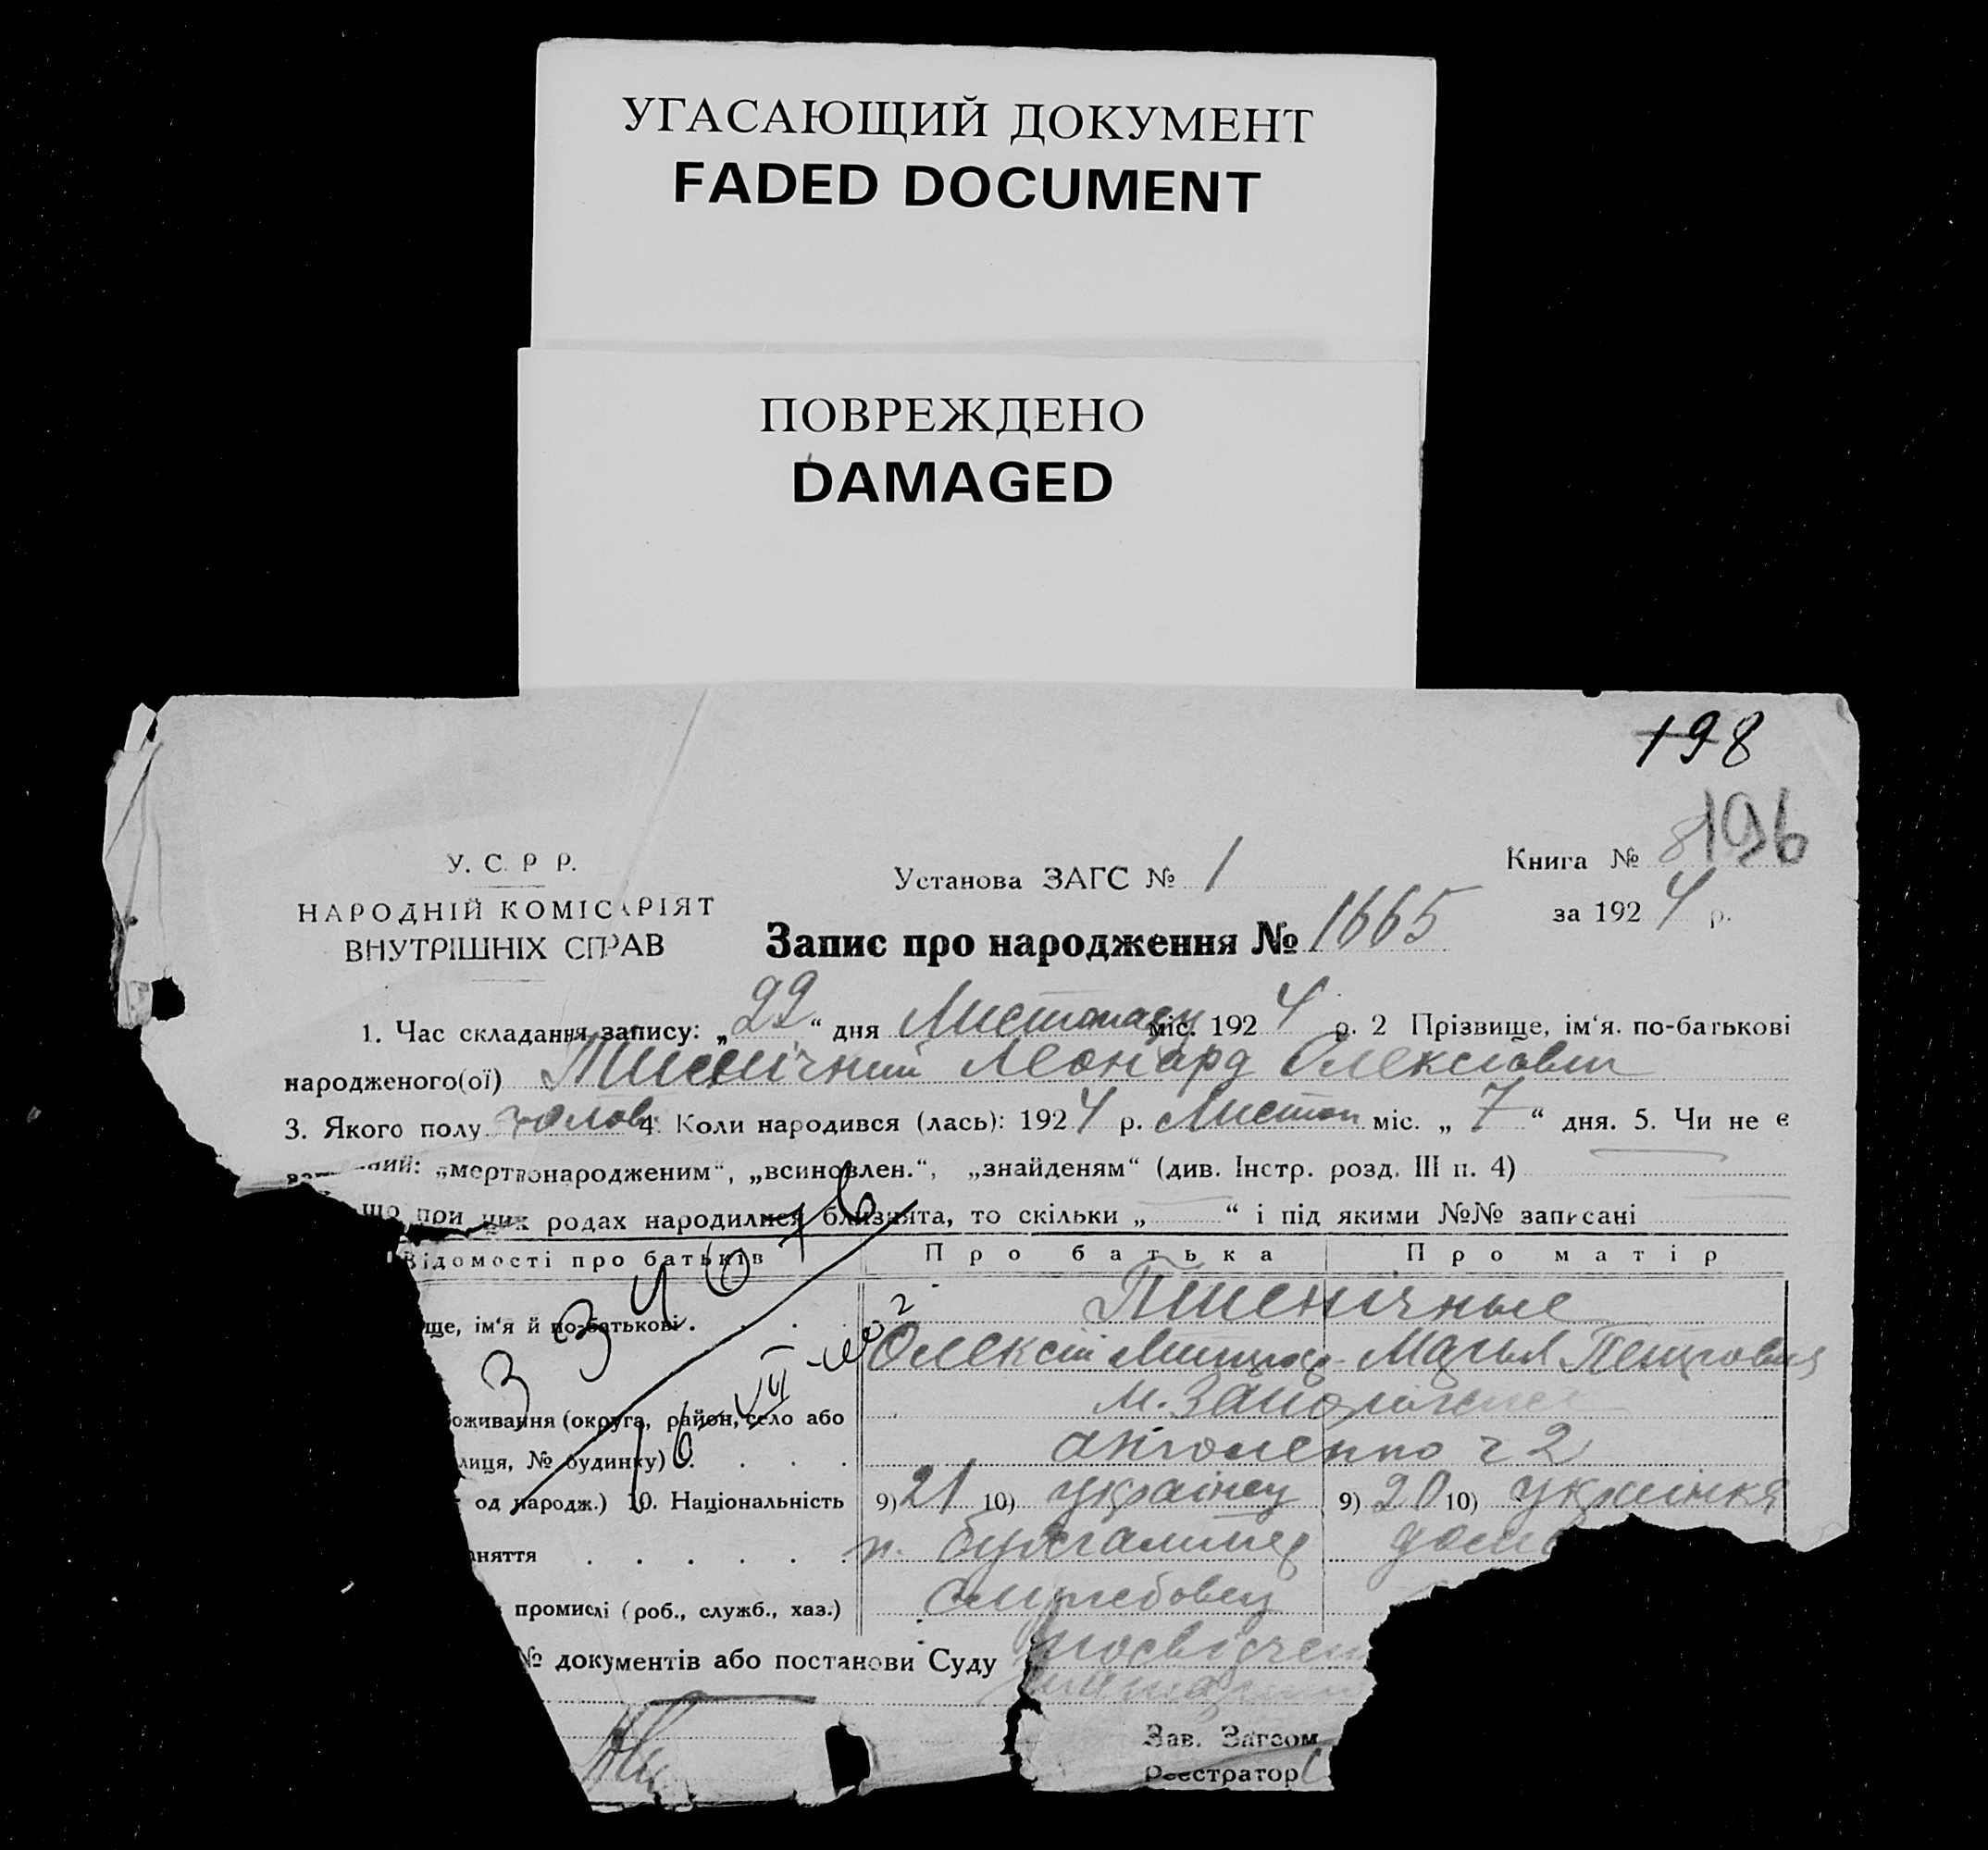 УГАСАЮЩИЙ ДОКУМЕНТ
FADED DOCUMENT
ПОВРЕЖДЕНО
DAMAGED
198
196
У. С. Р Р.
НАРОДНІЙ КОМІСАРІЯТ
ВНУТРІШНІХ СПРАВ
Установа ЗАГС № 1
Книга № 8
за 1924 р.
Запис про народження № 1665
1. Час складання запису: „22“ дня Листопаду міс. 1924 р. 2 Прізвище, ім'я. по-батькові
народженого(ої) Пшенічний Леонард Олексіович
3. Якого полу чолов. 4. Коли народився (лась): 1924 р. Листоп міс. „7“ дня. 5. Чи не є
„мертвонародженим“, „всиновлен.“, „знайденям“ (див. Інстр. розд. III п. 4)
що при цих родах народилися близнята, то скільки „ “ і під якими №№ записані
Відомості про батьків
Про батька
Про матір
ще, ім'я й по-батькові
Пшенічные
Олексій Марья Петровна
оживання (округа, район, село або
м. Запоріжжя
лиця, № будинку)
2
од народж.) 10. Національність
9) 21 10) украінец 9) 20 10) украінка
аняття
бухгалтер
промислі (роб., служб., хаз.)
Службовец
№ документів або постанови Суду
посвідчен
Зав. Загсом
Реєстратор